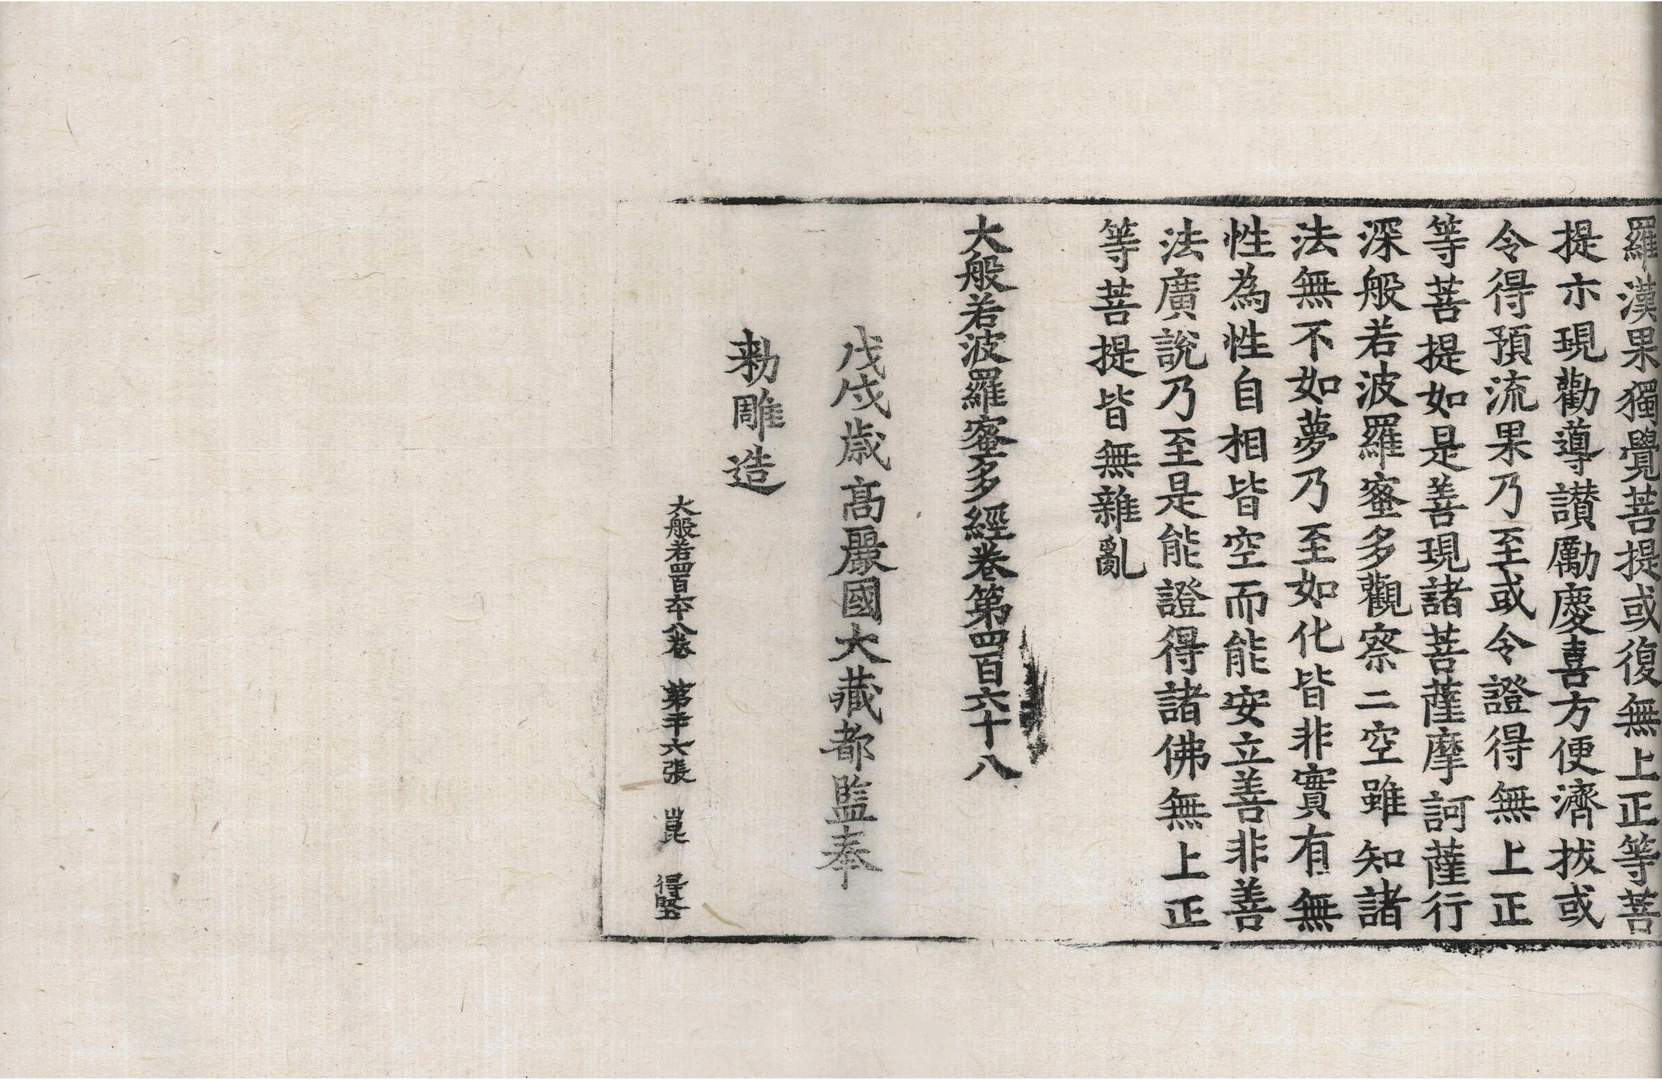 羅漢果獨覺菩提或復無上正等菩
提亦現勸導讃勵慶喜方便濟拔或
令得預流果乃至或令證得無上正
等菩提如是善現諸菩薩摩訶薩行
深般若波羅蜜多觀察二空雖知諸
法無不如夢乃至如化皆非實有無
性為性自相皆空而能安立善非善
法廣說乃至是能證得諸佛無上正
等菩提皆無雜亂
大般若波羅蜜多經卷第四百六十八
戊戌歲高麗國大藏都監奉
勅雕造
大般若四百六十八卷 第二十六張 崑 得堅